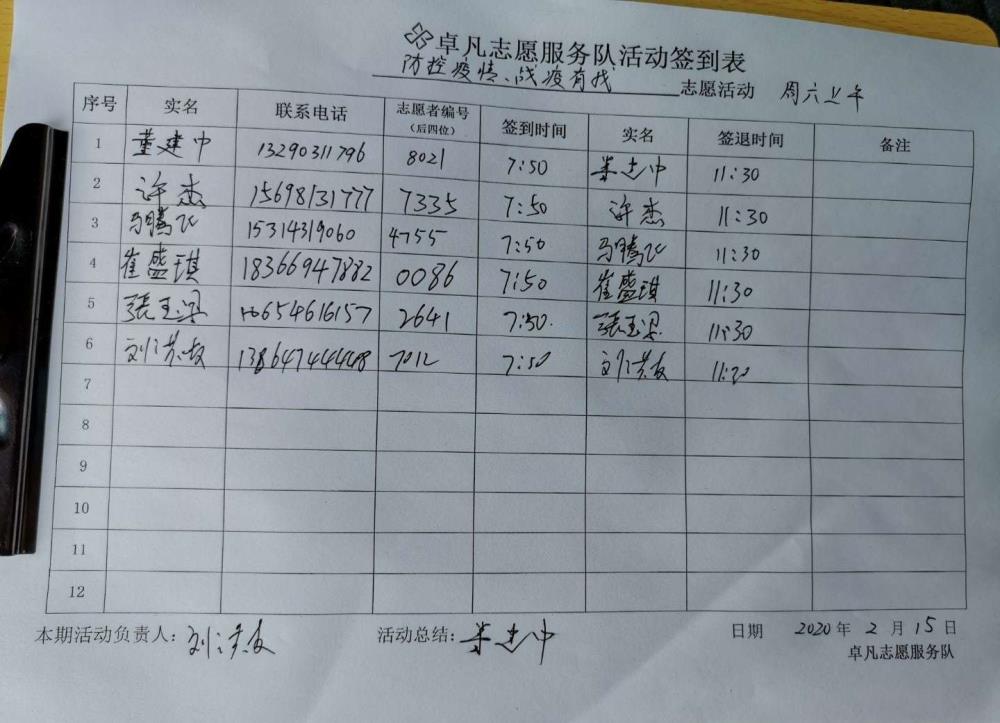 卓凡志愿服务队活动签到表
防控疫情、战疫有我 志愿活动 周六上午
序号 实名 联系电话 志愿者编号（后四位） 签到时间 实名 签退时间 备注
1 董建中 13290311796 8021 7:50 董建中 11:30
2 许杰 15698131777 7335 7:50 许杰 11:30
3 马腾飞 15314319060 4755 7:50 马腾飞 11:30
4 崔盛琪 18366947882 0086 7:50 崔盛琪 11:30
5 張玉梁 2641 7:50. 張玉梁 11:30
6 7012 7:50
7
8
9
10
11
12
本期活动负责人： 活动总结：董建中 日期 2020年2月15日
卓凡志愿服务队